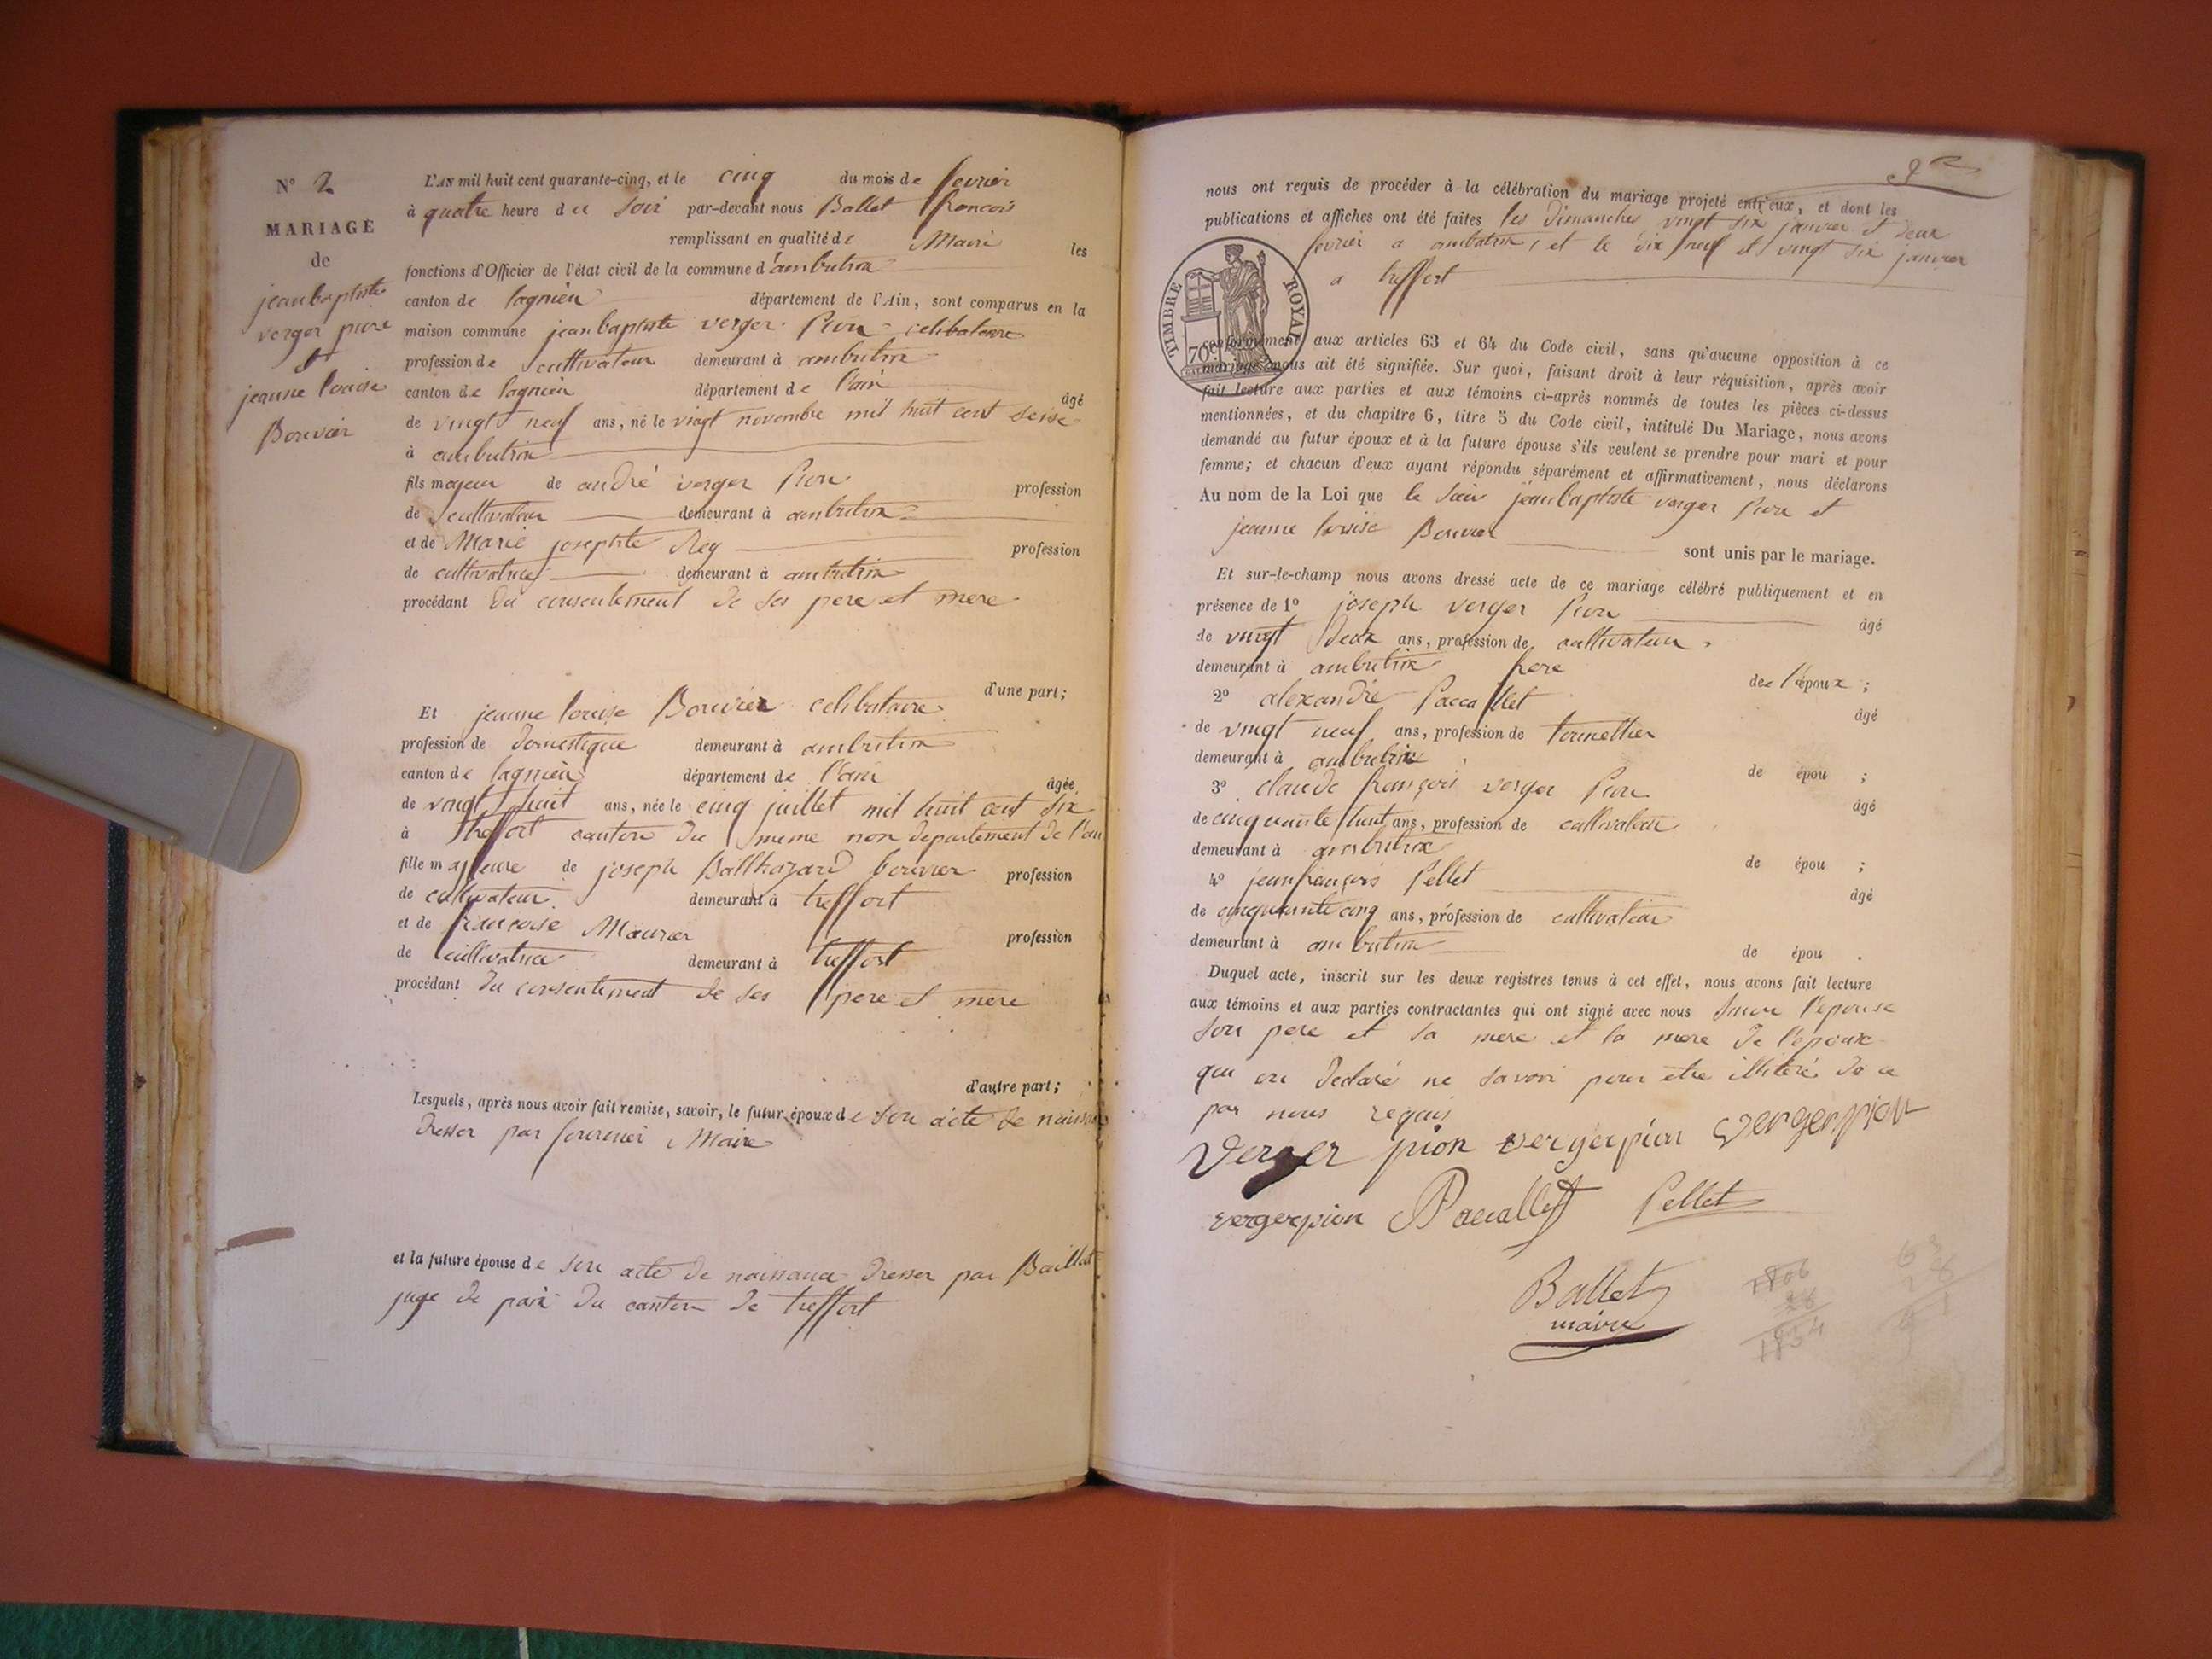 N° 2
MARIAGE
de
jeanbaptiste
verger pion
et
jeanne louise
Bouvier
L'AN mil huit cent quarante-cinq, et le cinq du mois de fevrier
à quatre heure du soir par-devant nous Ballet francois
remplissant en qualité de Maire les
fonctions d'Officier de l'état civil de la commune d'ambutrix
canton de lagnieu département de l'Ain, sont comparus en la
maison commune jeanbaptiste verger Pion celibataire
profession de cultivateur demeurant à ambutrix
canton de lagnieu département de l'ain âgé
de vingt neuf ans, né le vingt novembre mil huit cent seise
à ambutrix
fils majeur de andré verger Pion profession
de cultivateur demeurant à ambutrix
et de Marie josephte Rey profession
de cultivatrice demeurant à ambutrix
procédant du consentement de ses pere et mere
d'une part;
Et jeanne louise Bouvier celibataire
profession de domestique demeurant à ambutrix
canton de lagnieu département de l'ain âgée
de vingt huit ans, née le cinq juillet mil huit cent six
à theffort canton du meme nom departement de l'ain
fille majeure de joseph Balthazard bouvier profession
de cultivateur demeurant à treffort
et de francoise Maurer profession
de cultivatrice demeurant à treffort
procédant du consentement de ses pere et mere
d'autre part;
Lesquels, après nous avoir fait remise, savoir, le futur époux de son acte de naissance
dresser par fournier Maire
et la future épouse de son acte de naissance dresser par Baillat
juge de paix du canton de treffort
nous ont requis de procéder à la célébration du mariage projeté entr'eux, et dont les
publications et affiches ont été faites les dimanches vingt six janvier et deux
fevrier a ambutrix, et le dix neuf et vingt six janvier
a treffort
TIMBRE ROYAL
70
conformément aux articles 63 et 64 du Code civil, sans qu'aucune opposition à ce
mariage nous ait été signifiée. Sur quoi, faisant droit à leur réquisition, après avoir
fait lecture aux parties et aux témoins ci-après nommés de toutes les pièces ci-dessus
mentionnées, et du chapitre 6, titre 5 du Code civil, intitulé Du Mariage, nous avons
demandé au futur époux et à la future épouse s'ils veulent se prendre pour mari et pour
femme; et chacun d'eux ayant répondu séparément et affirmativement, nous déclarons
Au nom de la Loi que le jeanbaptiste verger Pion et
jeanne louise Bouvier sont unis par le mariage.
Et sur-le-champ nous avons dressé acte de ce mariage célébré publiquement et en
présence de 1° joseph verger Pion âgé
de vingt deux ans, profession de cultivateur
demeurant à ambutrix frere de l'époux ;
2° alexandre Paccallet âgé
de vingt neuf ans, profession de tonnellier
demeurant à ambutrix de épou ;
3° claude françois verger Pion âgé
de cinquante huit ans, profession de cultivateur
demeurant à ambutrix de épou ;
4° jeanfrançois Pellet âgé
de cinquante cinq ans, profession de cultivateur
demeurant à ambutrix de épou .
Duquel acte, inscrit sur les deux registres tenus à cet effet, nous avons fait lecture
aux témoins et aux parties contractantes qui ont signé avec nous l'epouse
son pere et sa mere et la mere de l'epoux
qui on declaré ne savoir pour etre illiteré de ce
par nous requis
Verger pion vergerpion vergerpion
vergerpion Pacallet Pellet
Ballet
maire
1806
28
1834